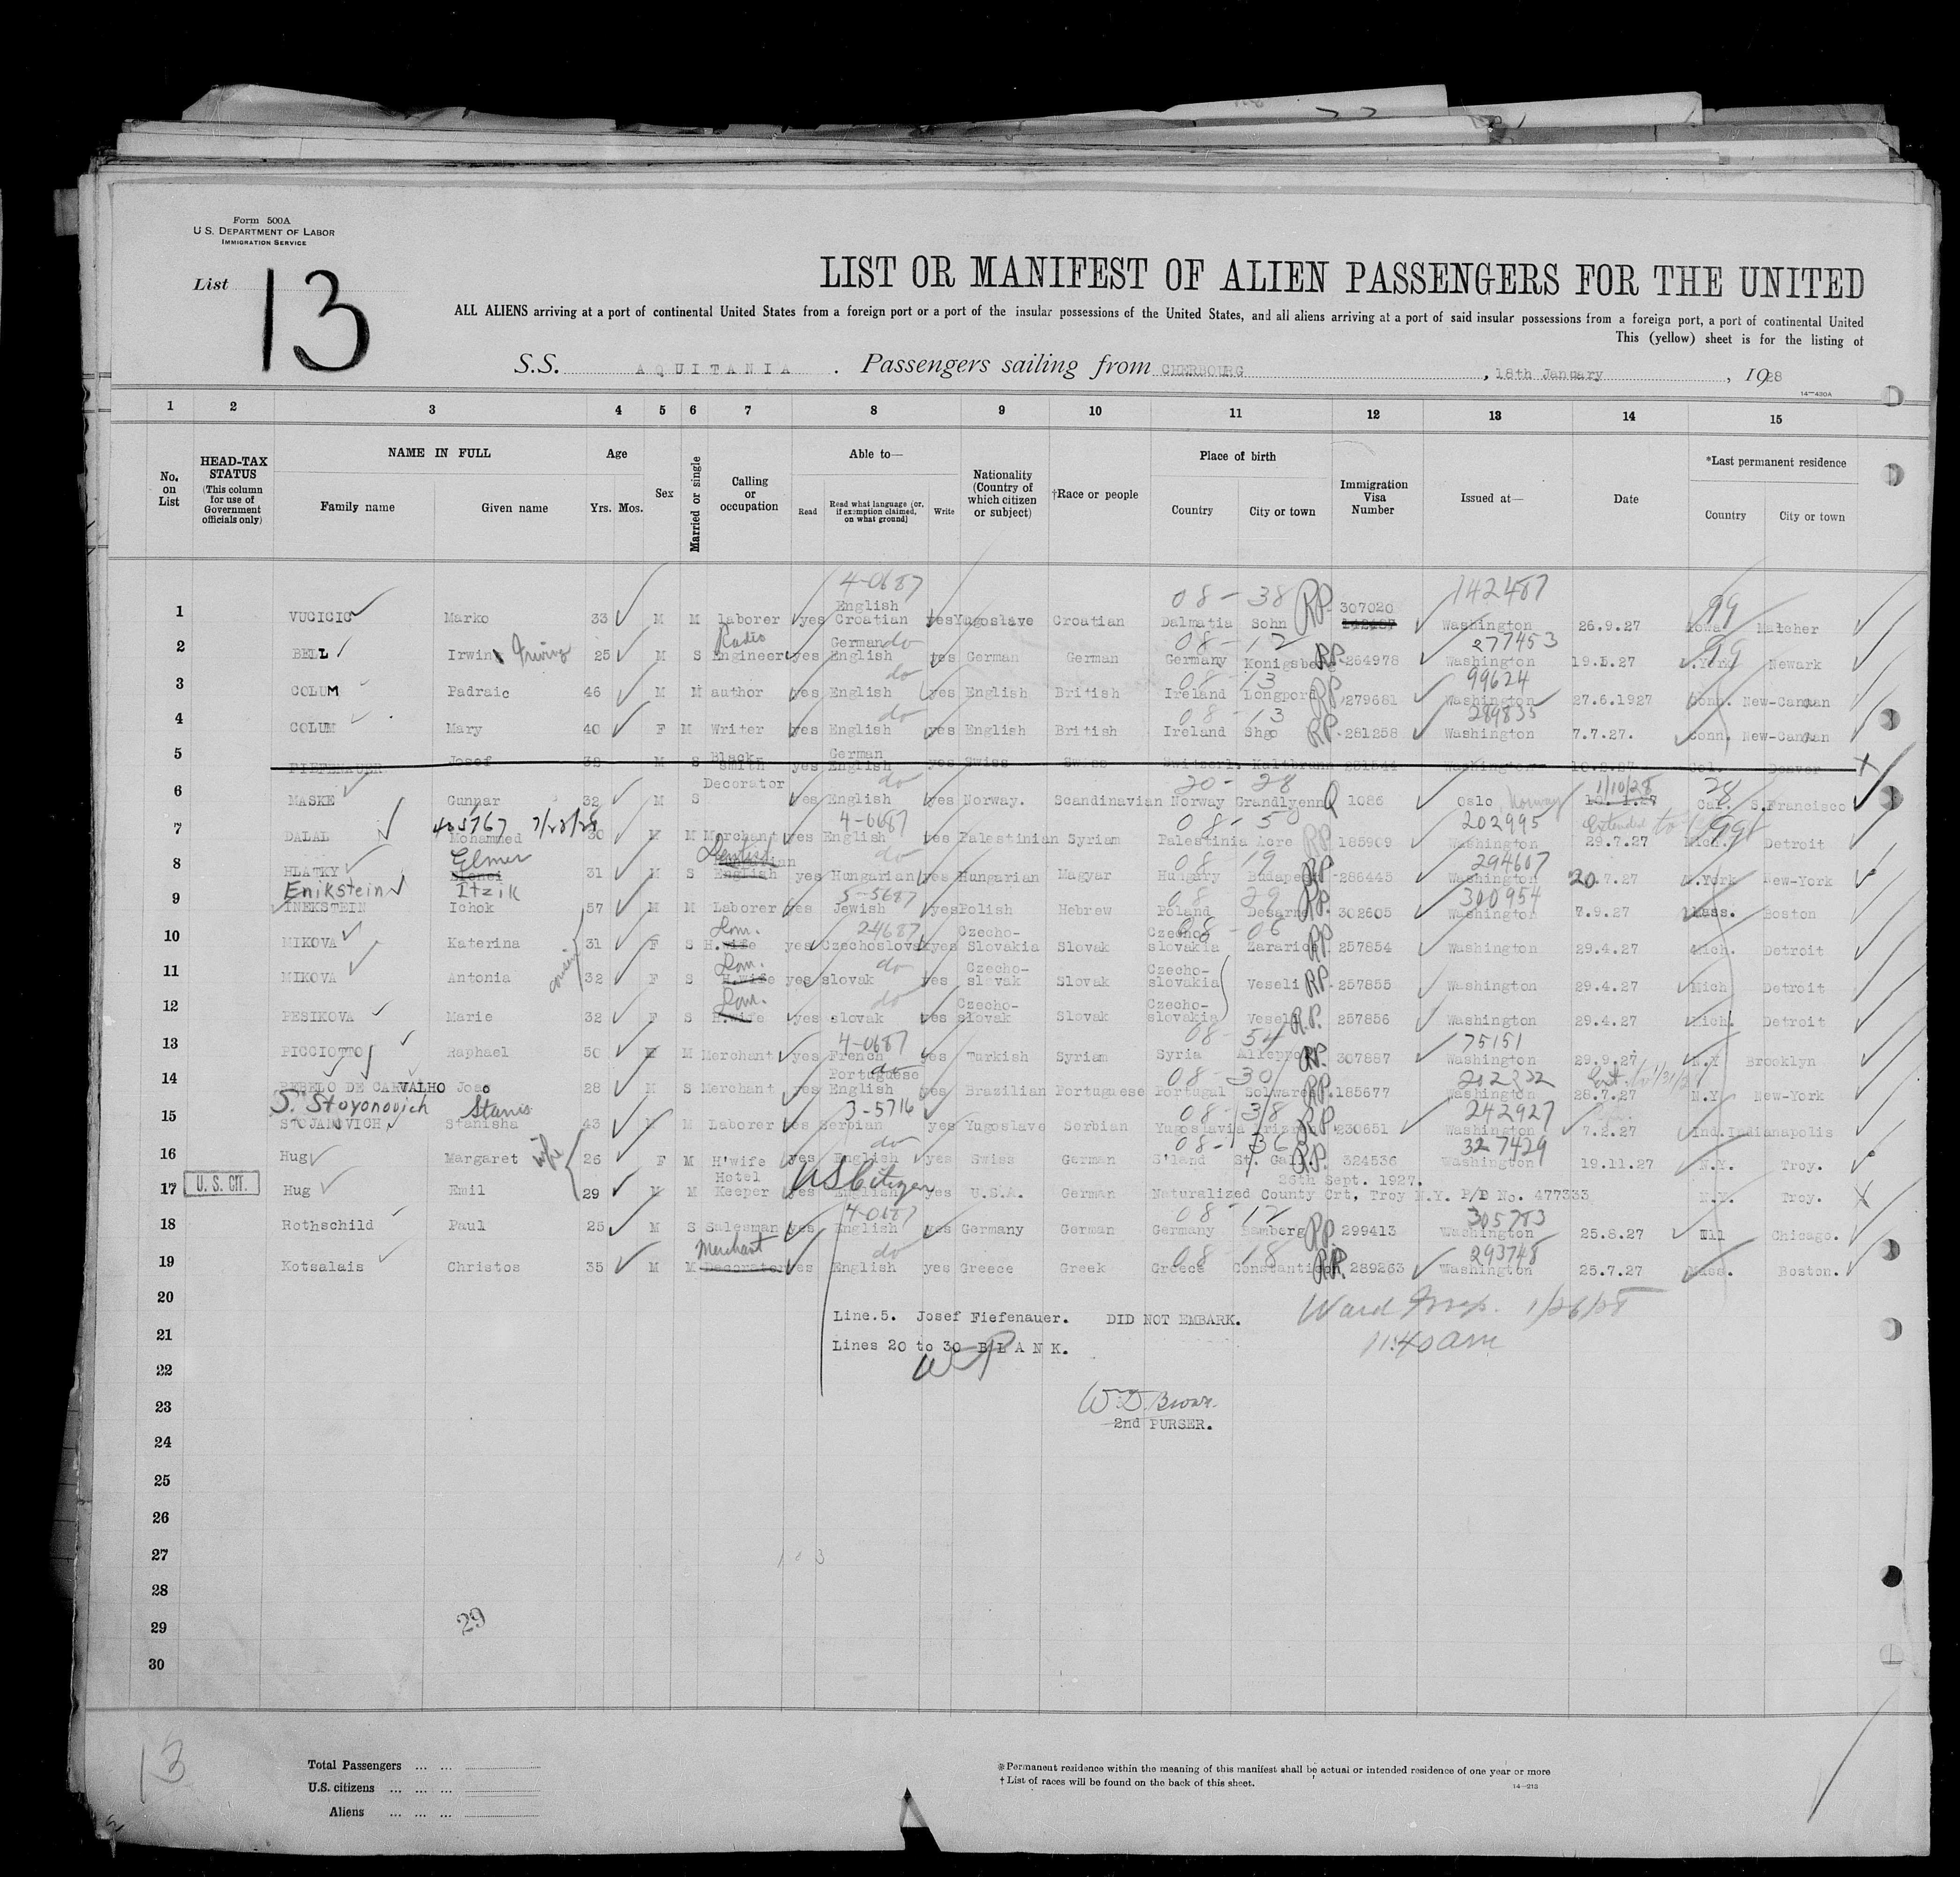 Form 500A
U.S. DEPARTMENT OF LABOR
IMMIGRATION SERVICE
List 13
LIST OR MANIFEST OF ALIEN PASSENGERS FOR THE UNITED
ALL ALIENS arriving at a port of continental United States from a foreign port or a port of the insular possessions of the United States, and all aliens arriving at a port of said insular possessions from a foreign port, a port of continental United
This (yellow) sheet is for the listing of
S.S. AQUITANIA. Passengers sailing from CHERBOURG, 18th January, 1928
14—430A
1 2 3 4 5 6 7 8 9 10 11 12 13 14 15
No. on List
HEAD-TAX STATUS (This column for use of Government officials only)
NAME IN FULL
Family name Given name
Age
Yrs. Mos.
Sex
Married or single
Calling or occupation
Able to—
Read Read what language (or, if exemption claimed, on what ground) Write
Nationality (Country of which citizen or subject)
†Race or people
Place of birth
Country City or town
Immigration Visa Number
Issued at—
Date
*Last permanent residence
Country City or town
4-0687 08-38 RP 142487 99
English 307020
1 VUCICIC Marko 33 M M laborer yes Croatian yes Yugoslave Croatian Dalmatia Sohn Washington 26.9.27 Iowa Malcher
Radio German do 08-12 277453 99
2 BELL Irwin Irving 25 M S Engineer yes English yes German German Germany Konigsberg RP 264978 Washington 19.5.27 N.York Newark
do 08-13 99624
3 COLUM Padraic 46 M M author yes English yes English British Ireland Longpord RP 279681 Washington 27.6.1927 Conn. New-Canaan
do 08-13 289835
4 COLUM Mary 40 F M Writer yes English yes English British Ireland Shgo RP 281258 Washington 7.7.27. Conn. New-Canaan
Black German
5 FIEFENAUER Josef 32 M S smith yes English yes Swiss Swiss Switzerl. Kaltbrunn Washington Col. Denver X
Decorator do 20-28 1/10/28 28
6 MASKE Gunnar 32 M S yes English yes Norway. Scandinavian Norway Grandlyenn Q 1086 Oslo Norway Cal. S.Francisco
405767 7/28/28 4-0687 08-5 202995 Extended to 99
7 DALAL Mohammed 30 M M Merchant yes English yes Palestinian Syriam Palestinia Acre RP 185909 Washington 29.7.27 Mich. Detroit
Elmer Dentist do 08-19 RP 294607
8 HLATKY 31 M S English yes Hungarian yes Hungarian Magyar Hungary Budapest 286445 Washington 20.7.27 N.York New-York
Enikstein Itzik 5-5687 08-29 RP 300954
9 INEKSTEIN Ichok 57 M M Laborer yes Jewish yes Polish Hebrew Poland Desarna 302605 Washington 7.9.27 Mass. Boston
Dom. 24687 Czecho- Czecho- 08-06
10 MIKOVA Katerina 31 F S H.wife yes Czechoslovak yes Slovakia Slovak slovakia Zararice RP 257854 Washington 29.4.27 Mich. Detroit
cousin
Dom. do Czecho- Czecho-
11 MIKOVA Antonia 32 F S H.wife yes slovak yes slovak Slovak slovakia Veseli RP 257855 Washington 29.4.27 Mich Detroit
Dom. do Czecho- Czecho-
12 PESIKOVA Marie 32 F S H.wife yes slovak yes slovak Slovak slovakia Vesela R.P. 257856 Washington 29.4.27 Mich. Detroit
4-0687 08-54 75151
13 PICCIOTTO Raphael 50 M M Merchant yes French yes Turkish Syriam Syria Alleppo RP. 307887 Washington 29.9.27 N.Y Brooklyn
Portuguese do 08-30 202332 Ext.
14 REBELO DE CARVALHO Joao 28 M S Merchant yes English yes Brazilian Portuguese Portugal Solwares RP. 185677 Washington 28.7.27 N.Y. New-York
S. Stoyonovich Stanis 3-5716 08-38 242927
15 STOJANOVICH Stanisha 43 M M Laborer yes Serbian yes Yugoslave Serbian Yugoslavia Prizna RP 230651 Washington 7.2.27 Ind. Indianapolis
do 08-36 327429
16 Hug Margaret wife 26 F M H'wife yes English yes Swiss German S'land St. Gall. R.P. 324536 Washington 19.11.27 N.Y. Troy.
Hotel US Citizen 26th Sept. 1927.
17 U. S. CIT. Hug Emil 29 M M Keeper yes English yes U.S.A. German Naturalized County Crt, Troy N.Y. P/P No. 477333 N.Y. Troy. X
4-0687 08-12 305783
18 Rothschild Paul 25 M S Salesman yes English yes Germany German Germany Bamberg RP 299413 Washington 25.8.27 Ill Chicago.
Merchant do 08-18 293748
19 Kotsalais Christos 35 M M Decorator yes English yes Greece Greek Greece RP. 289263 Washington 25.7.27 Mass. Boston.
20 Line.5. Josef Fiefenauer. DID NOT EMBARK. Ward Insp. 1/26/28
21 Lines 20 to 30 BLANK. 11:40 am
22
23 W.D. Brown
2nd PURSER.
24
25
26
27 103
28
29 29
30
13
Total Passengers ... ...
U.S. citizens ... ... ...
Aliens ... ... ...
*Permanent residence within the meaning of this manifest shall be actual or intended residence of one year or more
† List of races will be found on the back of this sheet. 14—213